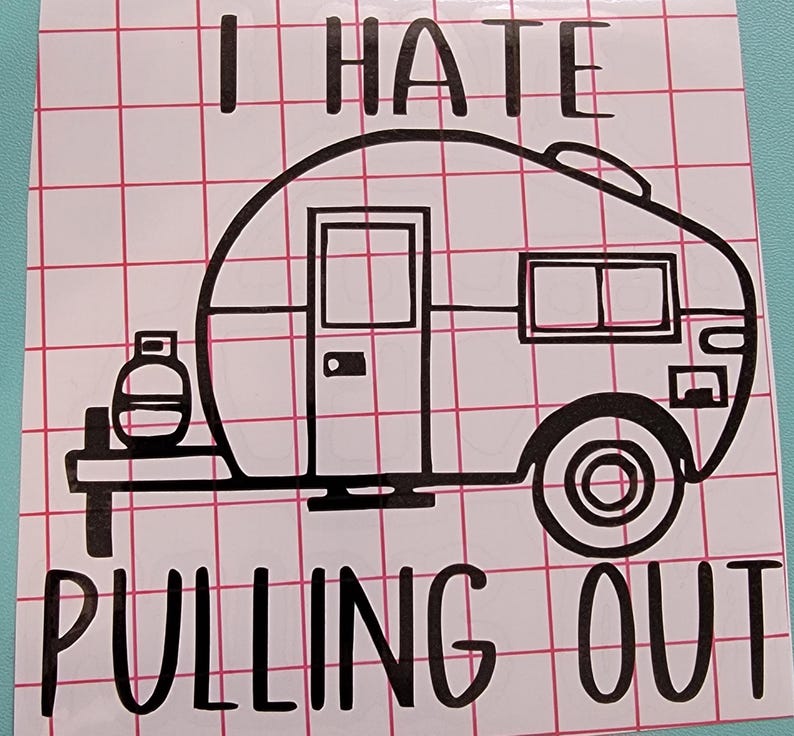 I HATE
PULLING OUT